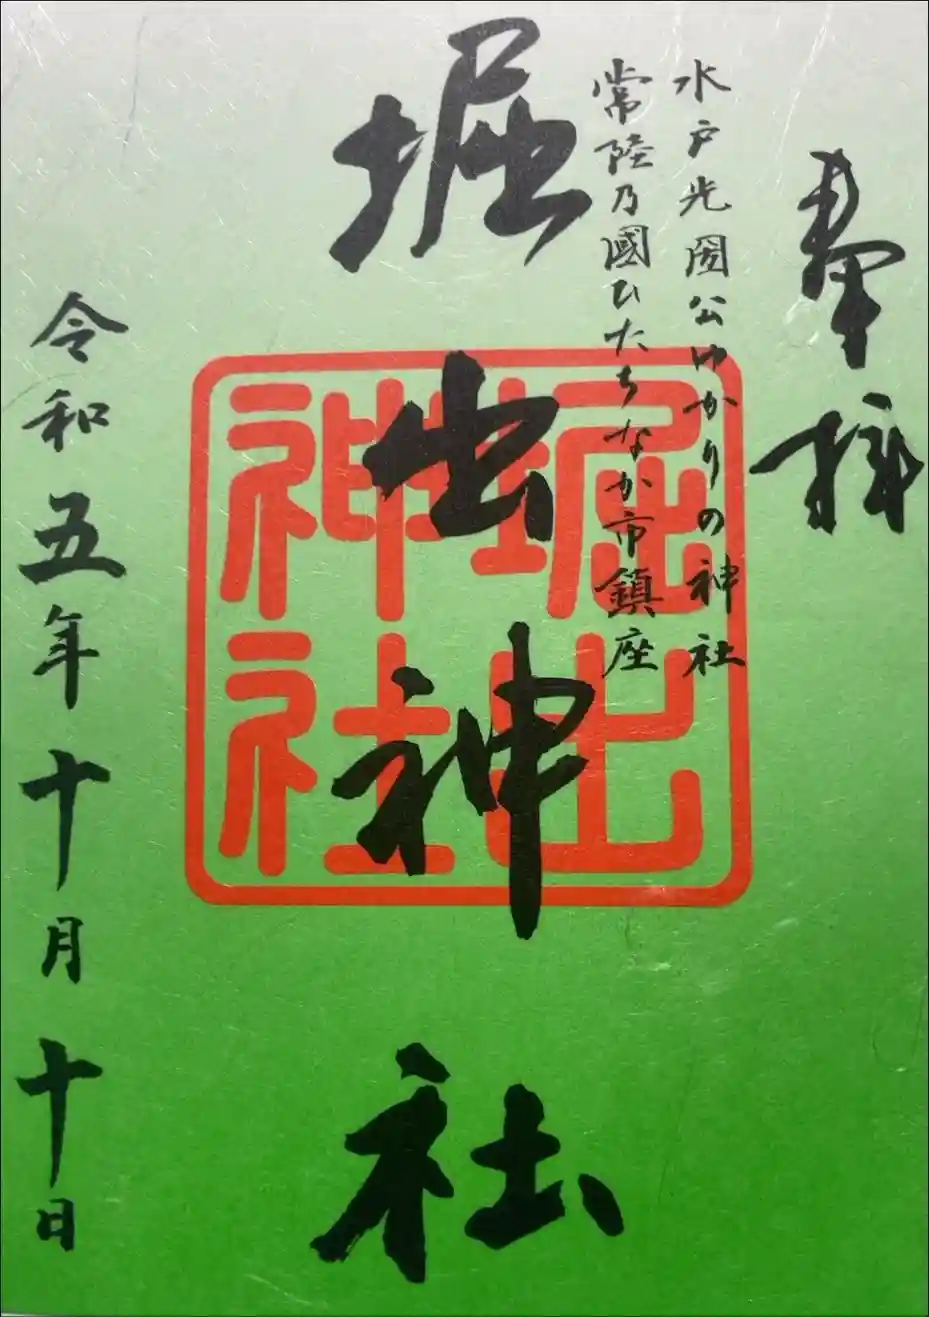 奉拝
水戸光圀公ゆかりの神社
常陸乃國ひたちなか市鎮座
堀出神社
堀出
神社
令和五年十月十日